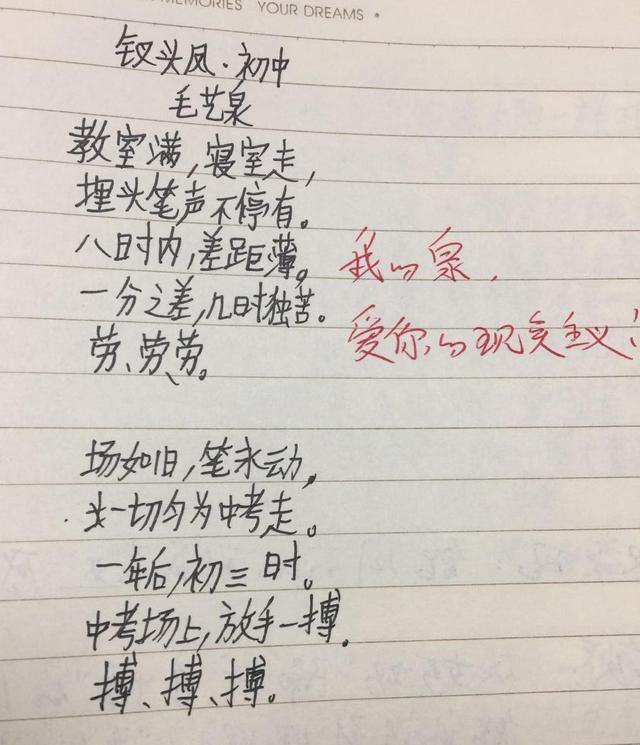 MEMORIES YOUR DREAMS
钗头凤·初中
毛艺泉
教室满,寝室走,
埋头笔声不停有。
八日时内,差距薄。
一分之差,几时独苦。
劳、劳、劳。
我的泉,
爱你的现实主义!
场如旧,笔未动,
一切匀为中考走。
一年后,初三时。
中考场上,放手一搏。
搏、搏、搏。